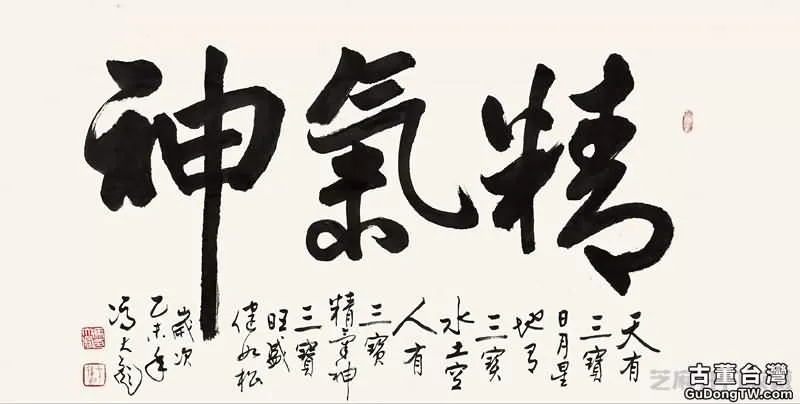 精氣神
天有
三寶
日月星
地有
三寶
水土空
人有
三寶
精氣神
三寶
旺盛
健如松
歲次
乙未年
冯大彪
古董台灣
GuDongTW.com